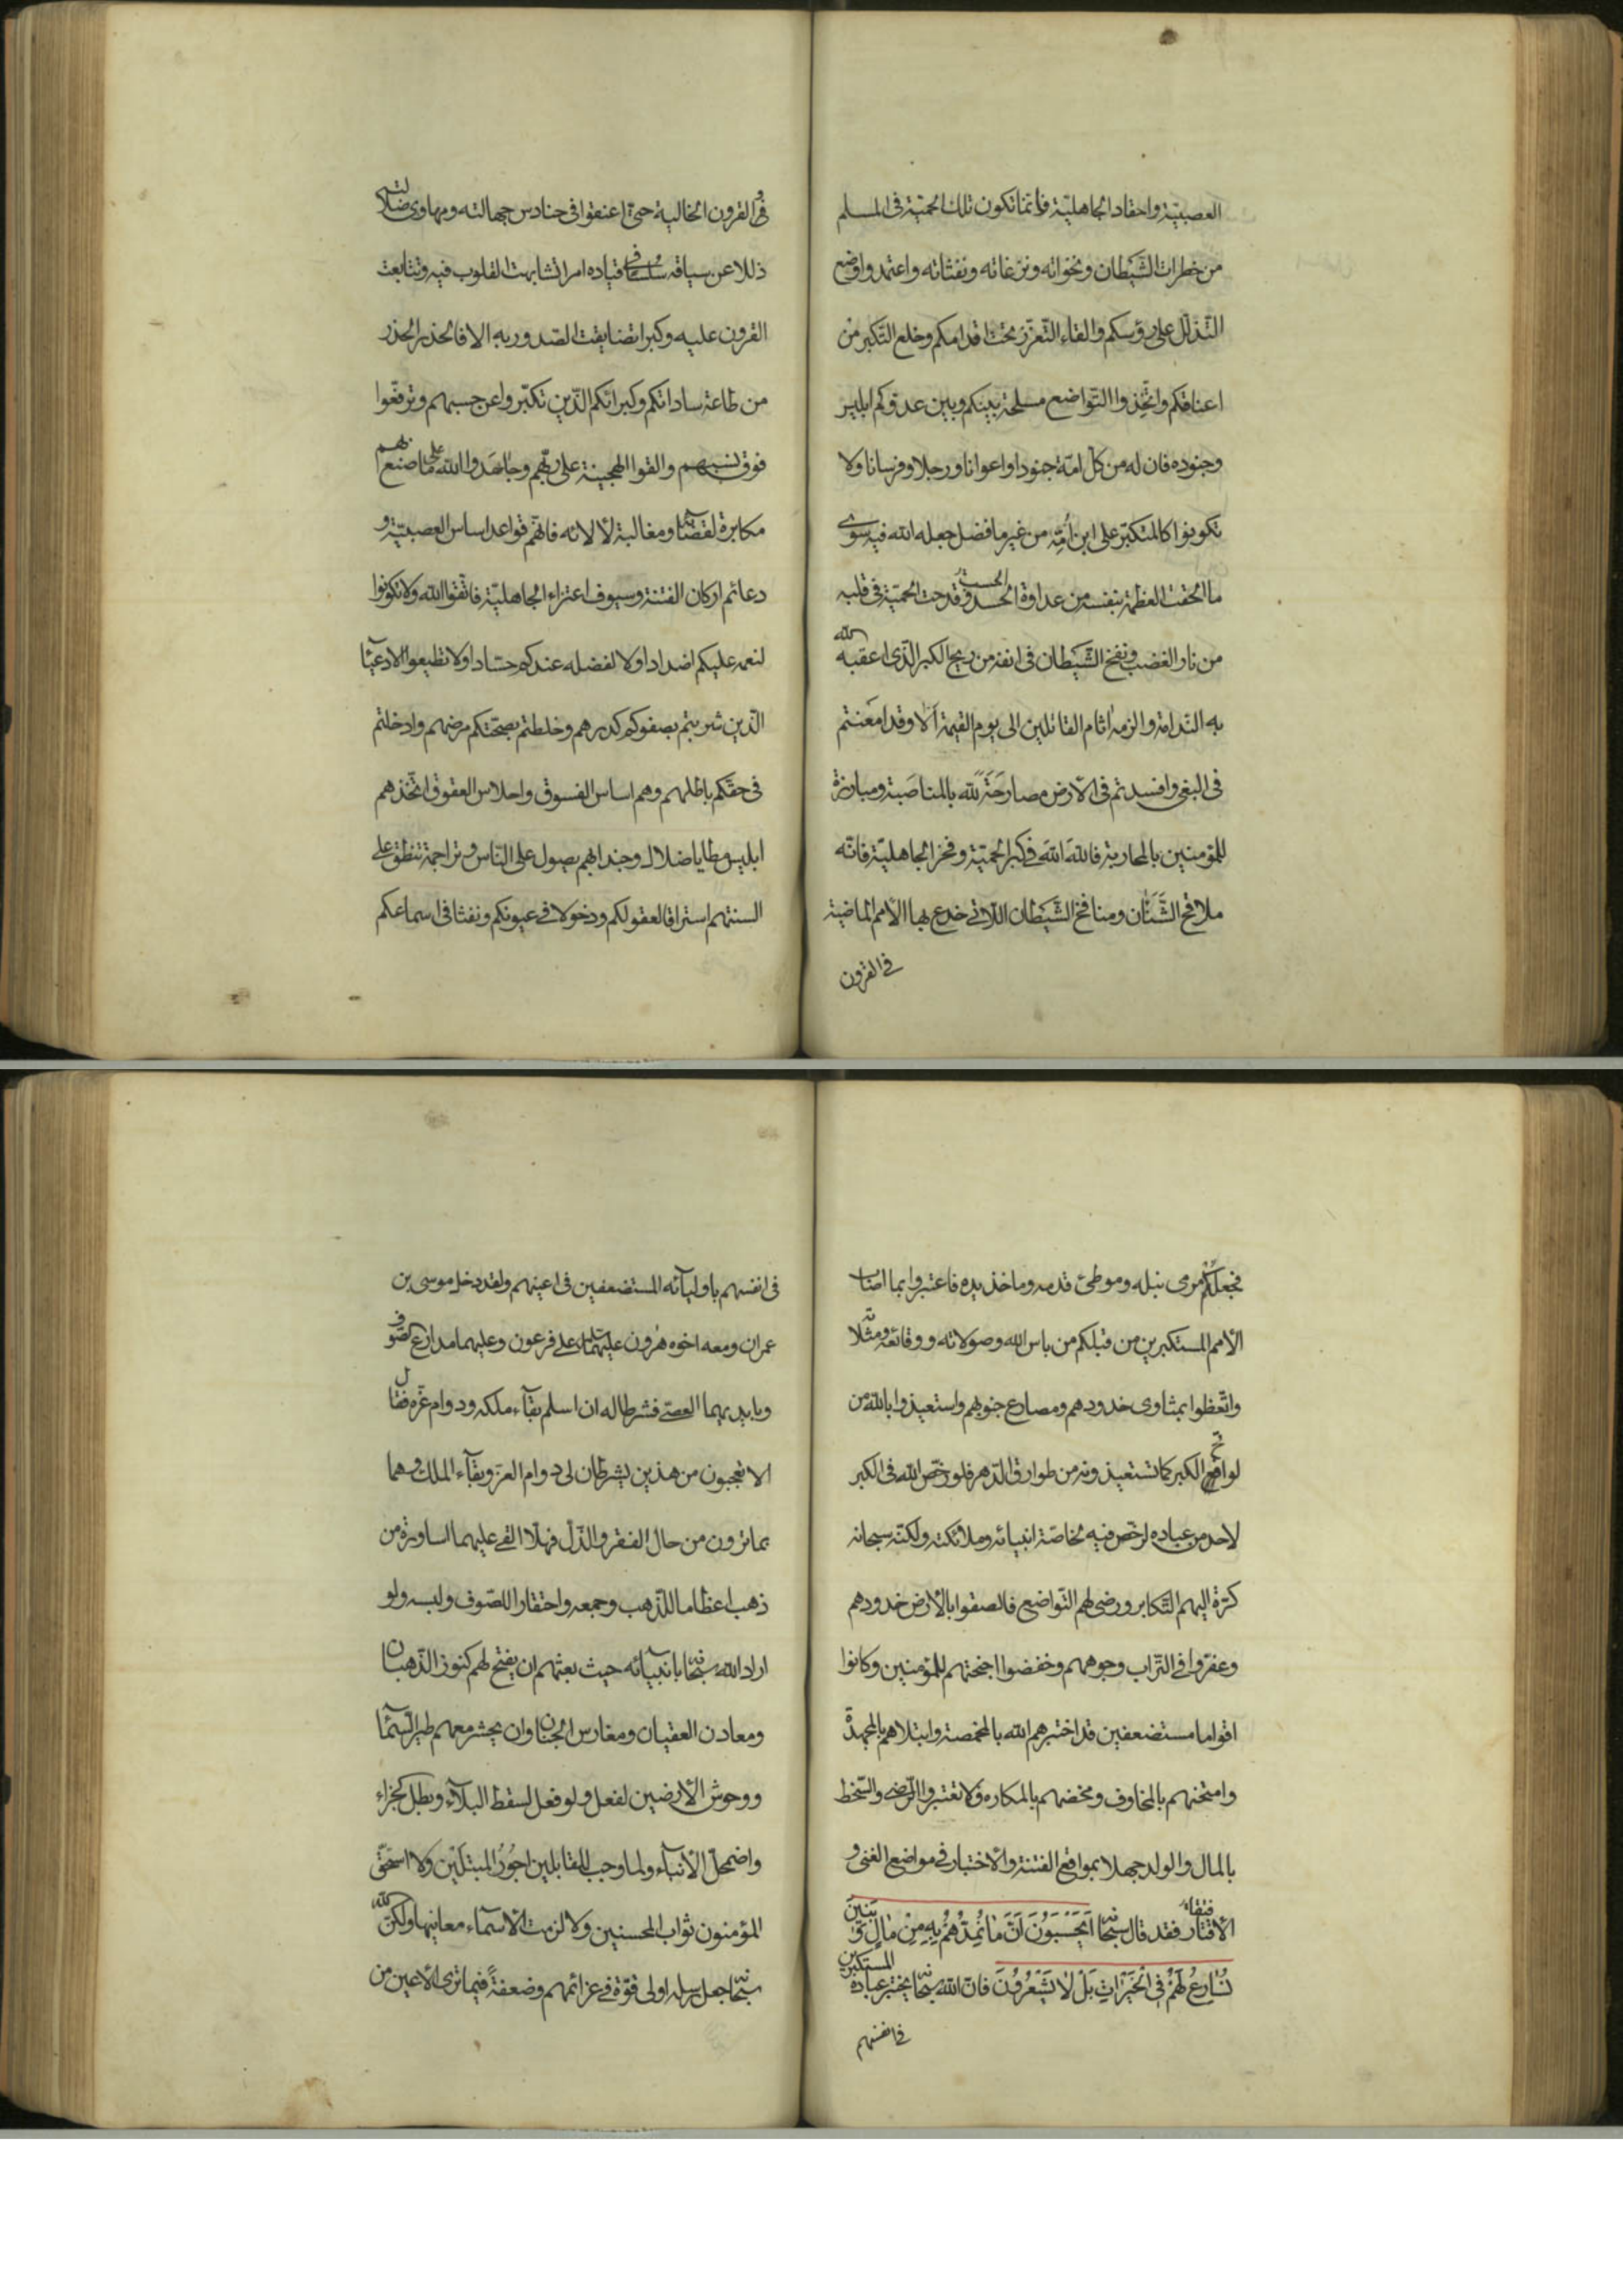 العصبيّة واحقاد الجاهليّة فانما تكون تلك الحميّة فى المسلم
من خطرات الشّيطان ونخواته ونزغاته ونفثاته واعتمدوا وضع
التّذلّل على رؤسكم والقاء التّعزّز تحت اقدامكم وخلع التّكبر من
اعناقكم واتّخذوا التّواضع مسلحة بينكم وبين عدوّكم ابليس
وجنوده فان له من كلّ امّة جنودا واعوانا ورجلا وفرسانا ولا
تكونوا كالمتكبّر على ابن اُمّه من غير ما فضل جعله الله فيه سوى
ما الحقت العظمة بنفسه من عداوة الحسد الحسب وقدحت الحميّة فى قلبه
من نار الغضب ونفخ الشّيطان فى انفه من ريح الكبر الّذى اعقبه الله
به النّدامة والزمه اثام القاتلين الى يوم القيمة اَلا وقد امعنتم
فى البغى وافسدتم فى الارض مصارحَةً لله بالمناصَبة ومبارزة
للمؤمنين بالمحاربة فاللهَ اللهَ فى كبر الحميّة وفخر الجاهليّة فانّه
ملاقح الشَّنَئَان ومنافخ الشّيطان اللّاتى خدع بها الامم الماضية
فى القرون
و فى القرون الخالية حتى اعنقوا فى حنادس جهالته ومهاوى ضلالته
ذللا عن سياقه سُلُسا فى قياده امرا تشابهت القلوب فيه وتتابعت
القرون عليه وكبرا تضايقت الصّدور به الا فالحذر الحذر
من طاعة ساداتكم وكبرائكم الّذين تكبّروا عن حسبهم وترفّعوا
فوق نسبهم والقوا الهجينة على ربّهم وجاهَدوا الله على ما صنع بهم
مكابرة لقضائه ومغالبة لالائه فانّهم قواعد اساس العصبيّة و
دعائم اركان الفتنة وسيوف اعتزاء الجاهليّة فاتّقوا الله ولا تكونوا
لنعمه عليكم اضدادا ولا لفضله عندكم حسّادا ولا تطيعوا الادعيآء
الّذين شربتم بصفوكم كدرهم وخلطتم بصحّتكم مرضهم وادخلتم
فى حقّكم باطلهم وهم اساس الفسوق واحلاس العقوق اتّخذهم
ابليس مطايا ضلال وجندا بهم يصول على النّاس وتراجمة ينطق على
السنتهم استراقا لعقولكم ودخولا فى عيونكم ونفثا فى اسماعكم
فجعلكُم مرمى نبله وموطئ قدمه وماخذ يده فاعتبروا بما اصاب
الامم المستكبرين من قبلكم من باس الله وصولاته ووقائعه ومثُلاته
واتّعظوا بمثاوى خدودهم ومصارع جنوبهم واستعيذوا بالله من
لواقح الكبر كما تستعيذونه من طوارق الدّهر فلو رخّص الله فى الكبر
لاحد من عباده لرخّص فيه لخاصّة انبيائه وملائكته ولكنّه سبحانه
كرّه اليهم التّكابر ورضى لهم التّواضع فالصقوا بالارض خدودهم
وعفّروا فى التّراب وجوههم وخفضوا اجنحتهم للمؤمنين وكانوا
اقواما مستضعفين قد اختبرهم الله بالمخمصة وابتلاهم بالمجهدة
وامتحنهم بالمخاوف ومخضهم بالمكاره فلا تعتبروا الرّضى والسّخط
بالمال والولد جهلا بمواقع الفتنة والاختبار فى مواضع الغنى و
الاقتار فقد قال سبحانه اَيَحْسَبُونَ اَنَّ مٰا نُمِدُّهُمْ بِهِ مِنْ مٰالٍ وَ بَنينَ
نُسٰارِعُ لَهُمْ فِى الْخَيْرٰاتِ بَلْ لٰا يَشْعُرُونَ فانّ الله سبحانه يختبر عباده المستكبرين
فى انفسهم
فى انفسهم باوليآئه المستضعفين فى اعينهم ولقد دخل موسى بن
عمران ومعه اخوه هٰرون عليهما السلم على فرعون وعليهما مدارع الصّوف
وبايديهما العصىّ فشرطا له ان اسلم بقآء ملكه ودوام عزّه فقال
الا تعجبون من هذين يشرطان لى دوام العزّ وبقآء الملك وهما
بما ترون من حال الفقر والذّلّ فهلّا القى عليهما اساورة من
ذهب اعظاما للذّهب وجمعه واحتقارا للصّوف ولبسه ولو
اراد الله سبحانه بانبيآئه حيث بعثهم ان يفتح لهم كنوز الذّهبان
ومعادن العقيان ومغارس الجنان وان يحشر معهم طير السّمآء
ووحوش الارضين لفعل ولو فعل لسقط البلآء وبطل الجزاء
واضمحلّ الانبآء ولما وجب للقابلين اجُورُ المبتلَيْن ولا استحقّ
المؤمنون ثواب المحسنين ولا لزمت الاسمآء معانيها ولكنّ الله
سبحانه جعل رسله اولى قوّة فى عزائمهم وضعفةً فيما ترى الاعين من